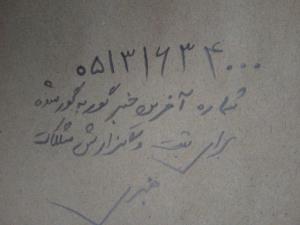 ۰۵۱۳۱۶۳۴۰۰۰
شماره آخرین خبر گور به گور شده
برای ثبت و گزارش مشکلات
خبری